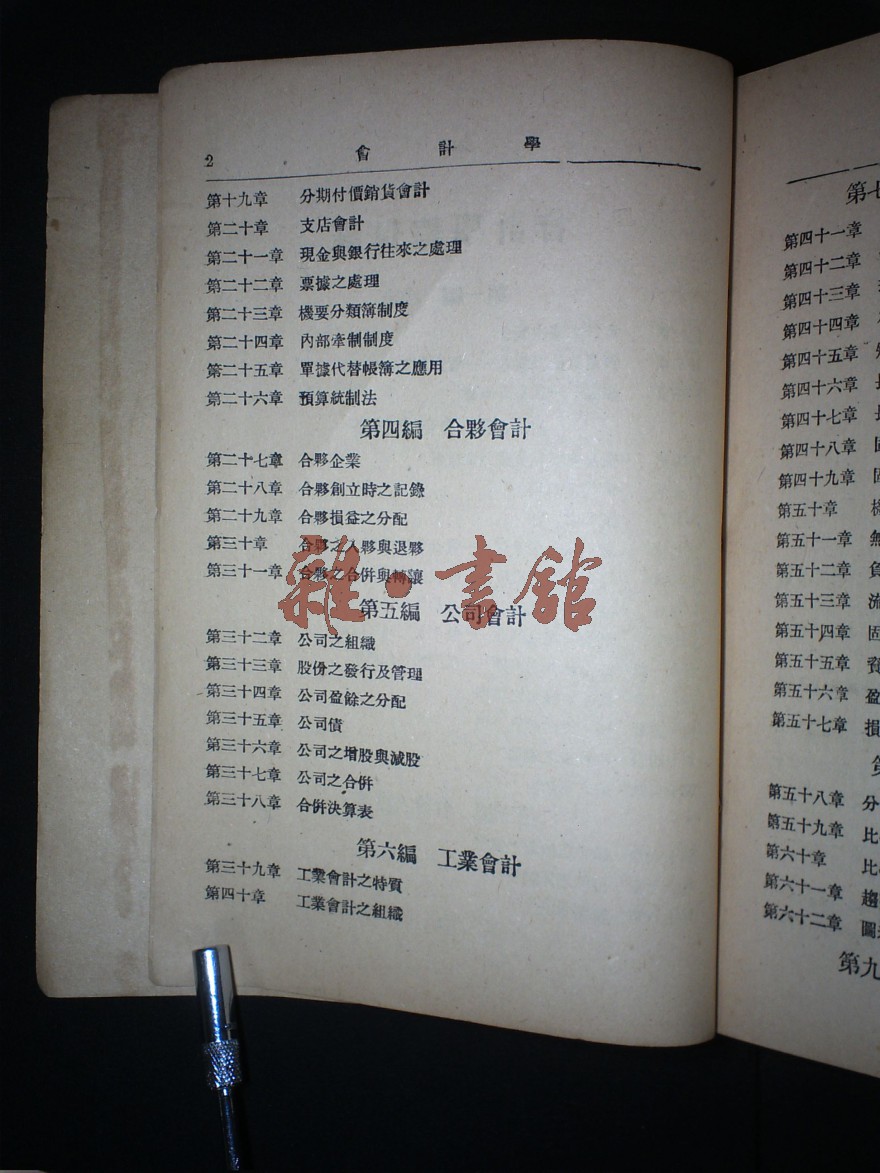 2 會計學
第十九章 分期付價銷貨會計
第二十章 支店會計
第二十一章 現金與銀行往來之處理
第二十二章 票據之處理
第二十三章 機要分類簿制度
第二十四章 內部牽制制度
第二十五章 單據代替帳簿之應用
第二十六章 預算統制法
第四編 合夥會計
第二十七章 合夥企業
第二十八章 合夥創立時之記錄
第二十九章 合夥損益之分配
第三十章 合夥之入夥與退夥
第三十一章 合夥之合併與轉讓
雜·書館
第五編 公司會計
第三十二章 公司之組織
第三十三章 股份之發行及管理
第三十四章 公司盈餘之分配
第三十五章 公司債
第三十六章 公司之增股與減股
第三十七章 公司之合併
第三十八章 合併決算表
第六編 工業會計
第三十九章 工業會計之特質
第四十章 工業會計之組織
第七
第四十一章
第四十二章
第四十三章
第四十四章
第四十五章
第四十六章 長
第四十七章 長
第四十八章 固
第四十九章 固
第五十章
第五十一章 無
第五十二章 負
第五十三章 流
第五十四章 固
第五十五章 資
第五十六章 盈
第五十七章 損
第
第五十八章 分
第五十九章 比
第六十章 比
第六十一章 趨
第六十二章 圖
第九